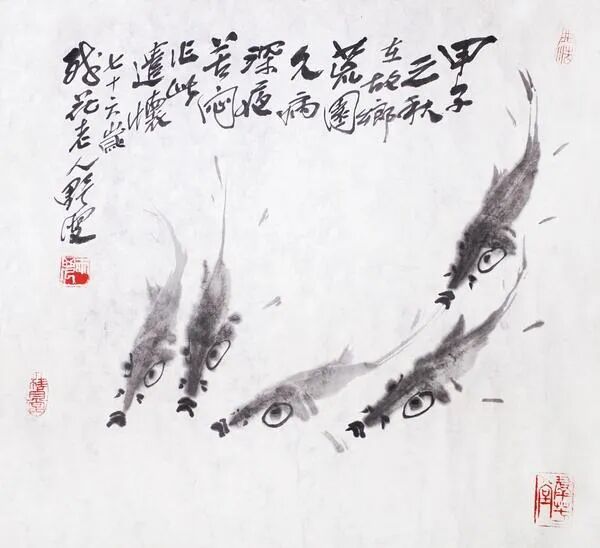 甲子
之秋
在故鄉
荒園
久病
深夜
苦悶
作此
遣懷
七十六歲
老人